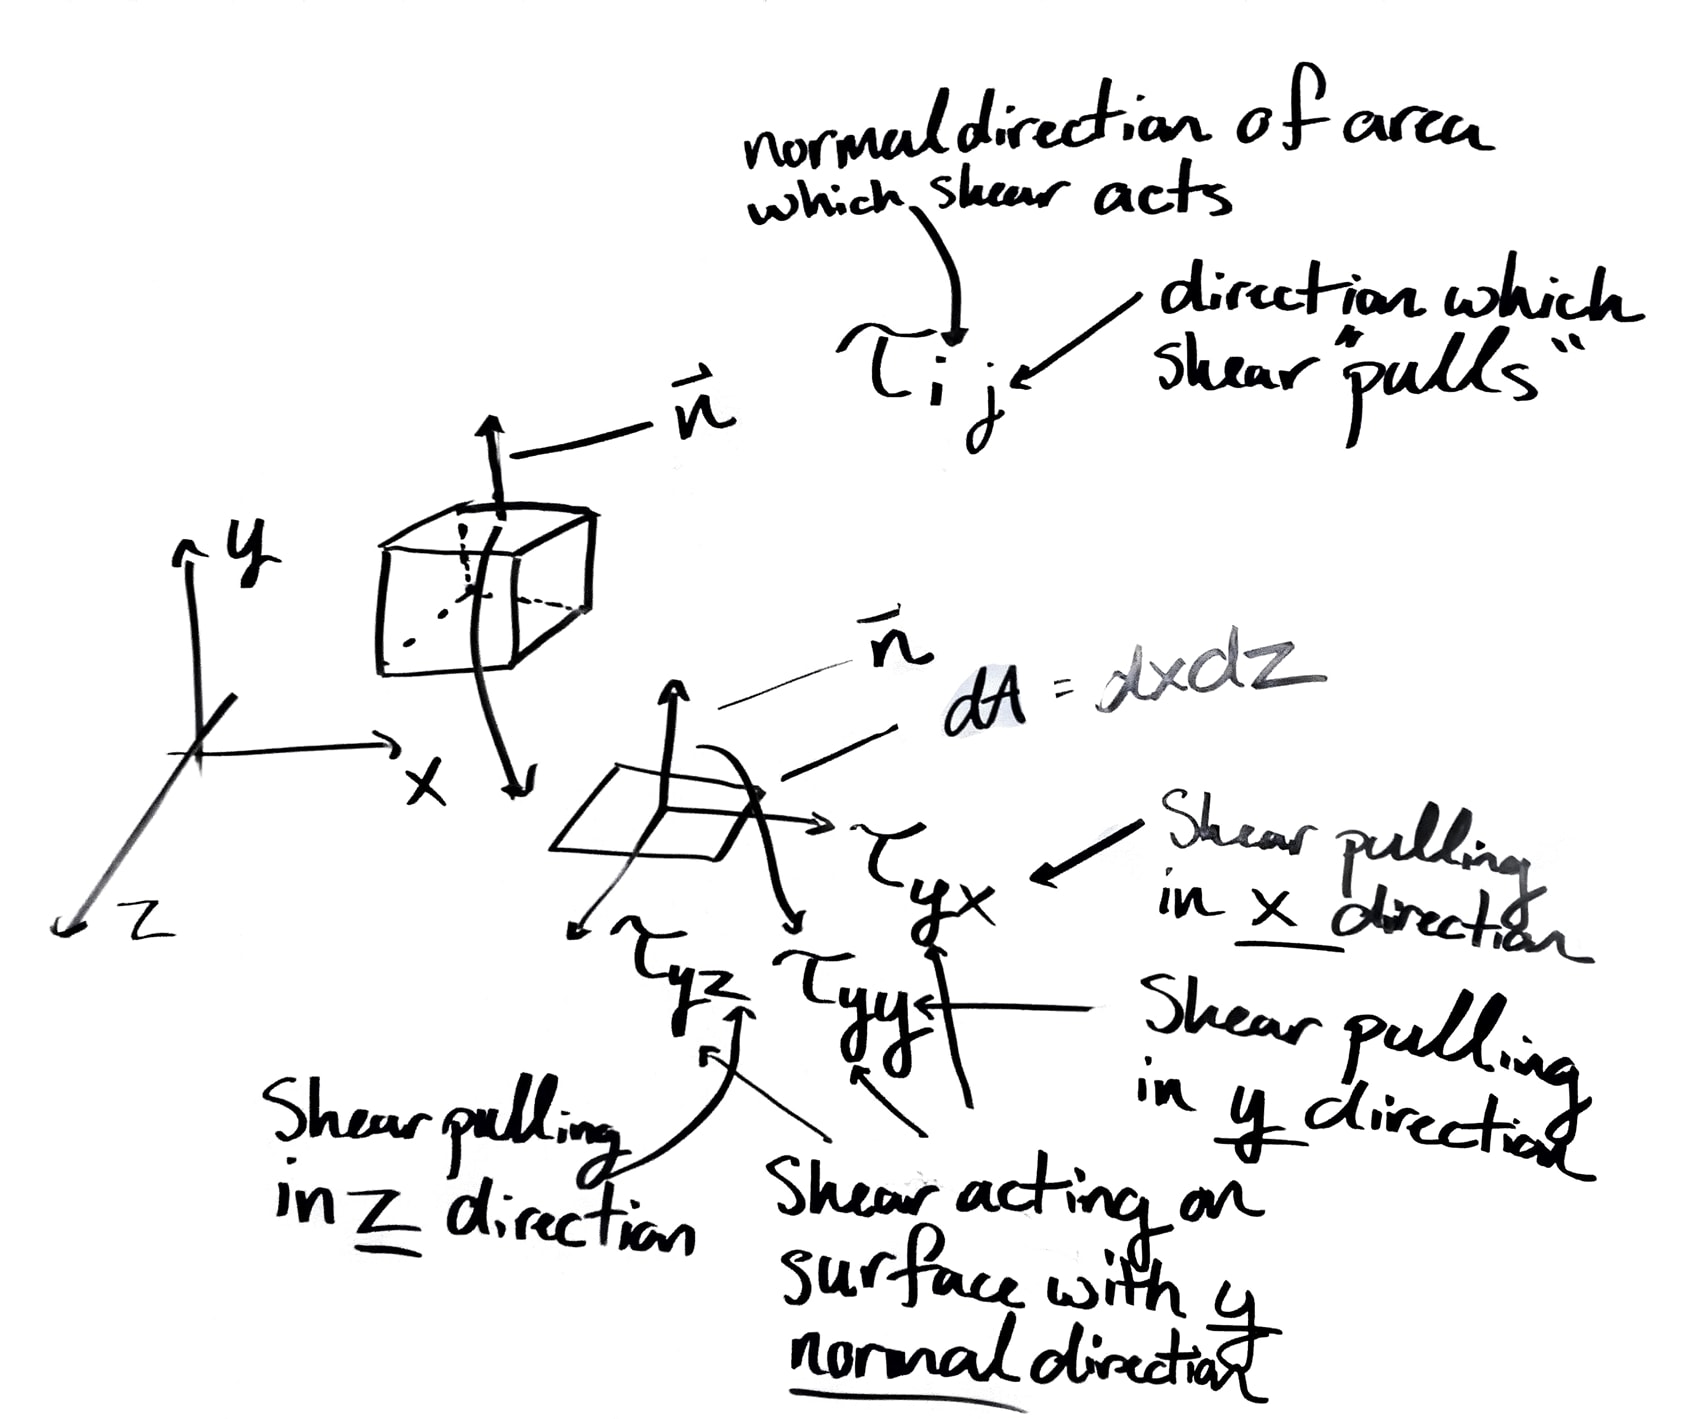 normal direction of area
which shear acts
direction which
shear "pulls"
τij
n⃗
y
x
z
n⃗
dA = dxdz
τyx
Shear pulling
in x direction
τyz
τyy
Shear pulling
in y direction
Shear pulling
in z direction
Shear acting on
surface with y
normal direction